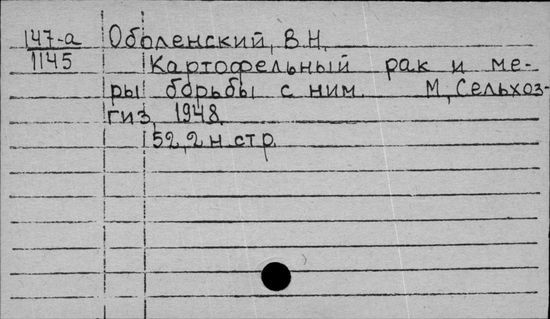 147-а Оболенский, В.Н.
1145 Картофельный рак и ме-
ры борьбы с ним. М, Сельхоз-
гиз, 1948.
52, 2 н. стр.